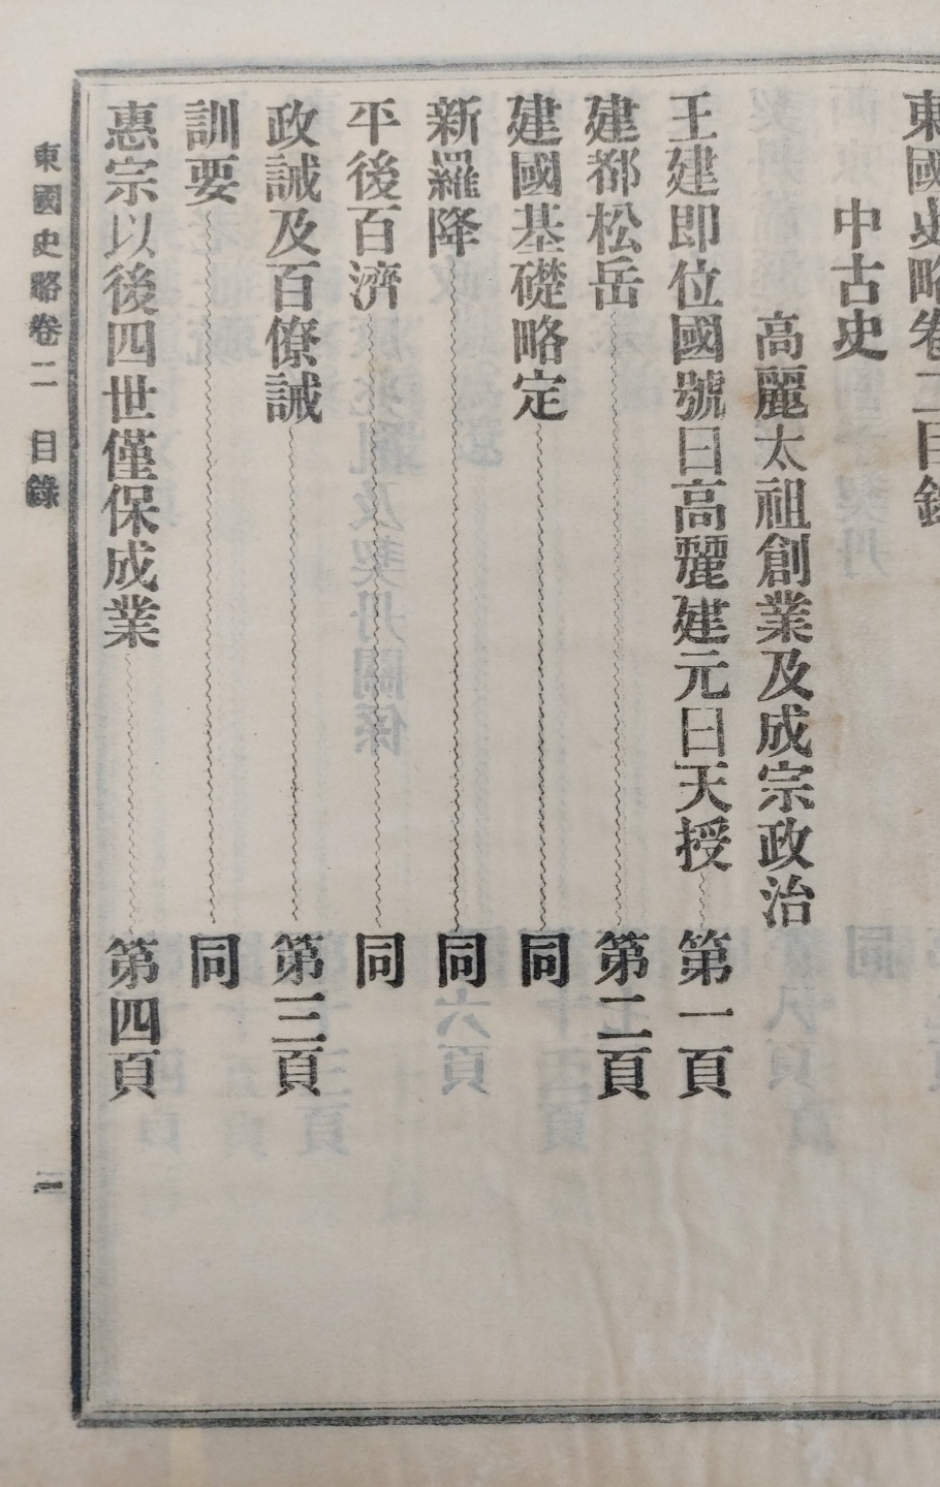 東國史略卷二目錄
中古史
高麗太祖創業及成宗政治
王建即位國號曰高麗建元曰天授 第一頁
建都松岳 第二頁
建國基礎略定 同
新羅降 同
平後百濟 同
政誡及百僚誡 第三頁
訓要 同
惠宗以後四世僅保成業 第四頁
東國史略卷二 目錄 一